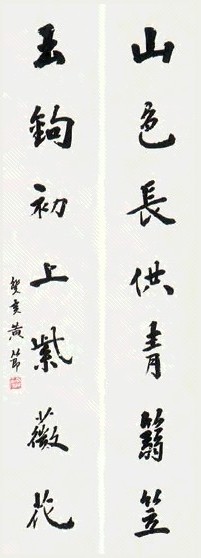 山色長供青箬笠
玉鉤初上紫薇花
癸亥黃節